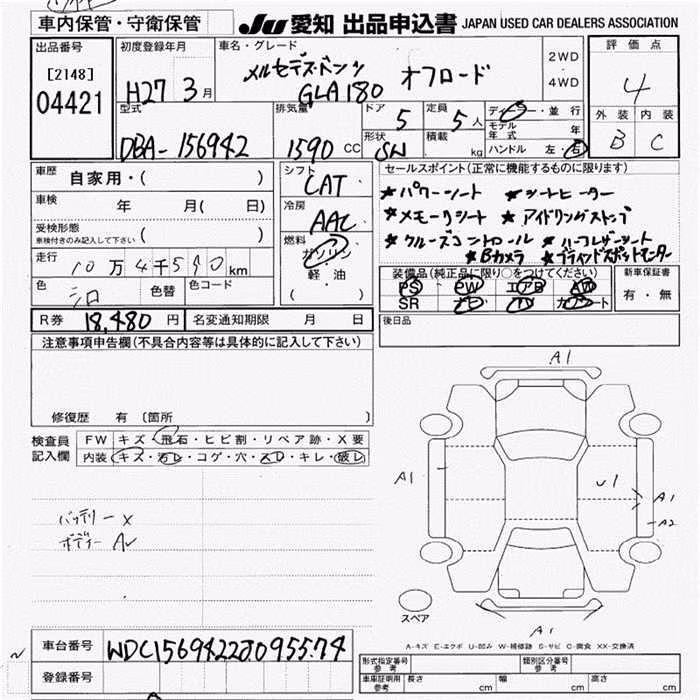 車内保管・守衛保管
JU 愛知 出品申込書 JAPAN USED CAR DEALERS ASSOCIATION
出品番号
[2148]
04421
初度登録年月
H27 3月
車名・グレード
メルセデス・ベンツ オフロード
GLA180
2WD
4WD
評価点
4
外装 内装
B C
型式
DBA-156942
排気量
1590 CC
ドア 5
定員 5人
形状 SW
積載 kg
ディーラー・並行
モデル年式 年
ハンドル 左・右
車歴 自家用・( )
車検 年 月( 日)
受検形態
車検付きのみ記入して下さい ( )
走行 10万4千590km
色 シロ 色替 色コード
シフト
CAT
冷房
AAC
燃料
ガソリン
軽・油
( )
セールスポイント(正常に機能するものに限ります)
★パワーシート ★シートヒーター
★メモリシート ★アイドリングストップ
★クルーズコントロール ★ハーフレザーシート
★Bカメラ ★ブラインドスポットモニター
装備品(純正品に限り○をつけてください)
PS PW エアB AW
SR ナビ TV カワシート
新車保証書
有・無
R券 18,480円 名変通知期限 月 日
後日品
注意事項申告欄(不具合内容等は具体的に記入して下さい)
修復歴 有 〔箇所 〕
検査員記入欄
FW キズ・飛石・ヒビ割・リペア跡・X要
内装 キズ・汚レ・コゲ・穴・スレ・キレ・破レ
バッテリー×
ボデー A
A1
A1
U1
A1
A2
A1
スペア
A-キズ E-エクボ U-凹み W-補修跡 S-サビ C-腐食 XX-交換済
車台番号 WDC1569422J095574
登録番号
形式指定番号 参考
類別区分番号 参考
車庫証明用 参考 長さ cm 幅 cm 高さ cm